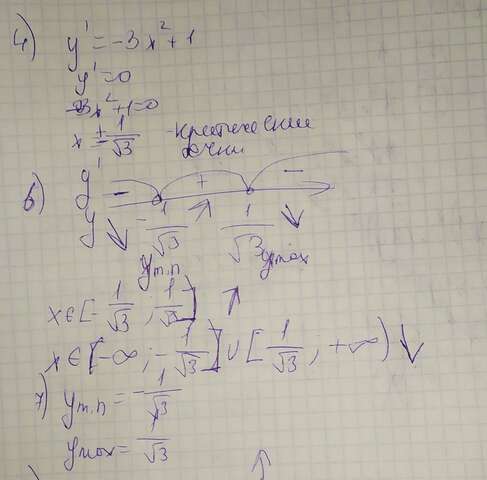 4) y' = -3x² + 1
y' = 0
-3x² + 1 = 0
x = ± 1/√3 - критические
точки
6) y' - + -
y ↘ -1/√3 ↗ 1/√3 ↘
ymin ymax
x ∈ [-1/√3 ; 1/√3] ↗
x ∈ [-∞ ; -1/√3] ∪ [1/√3 ; +∞) ↓
7) ymin = -1/√3
ymax = 1/√3
↑